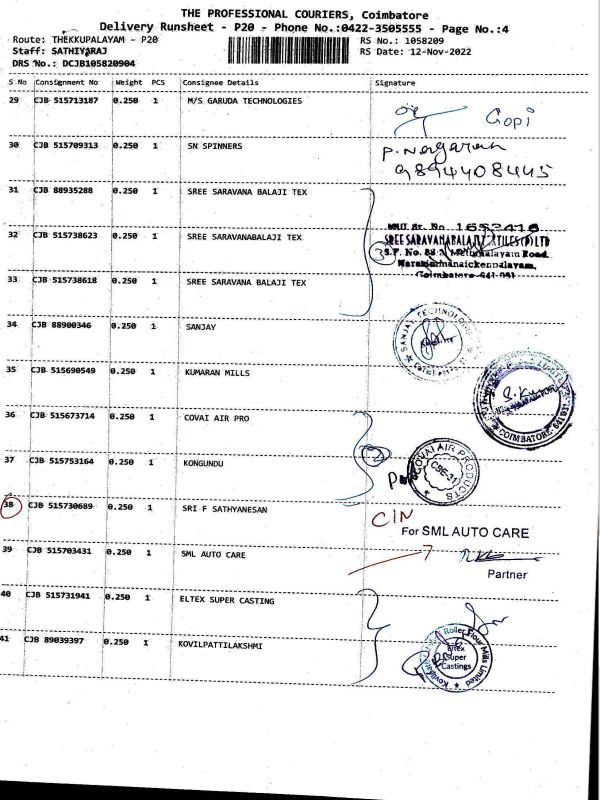 THE PROFESSIONAL COURIERS, Coimbatore
Delivery Runsheet - P20 - Phone No.:0422-3505555 - Page No.:4
Route: THEKKUPALAYAM - P20 RS No.: 1058209
Staff: SATHIYARAJ RS Date: 12-Nov-2022
DRS No.: DCJB105820904
S No Consignment No Weight PCS Consignee Details Signature
29 CJB 515713187 0.250 1 M/S GARUDA TECHNOLOGIES Gopi
30 CJB 515709313 0.250 1 SN SPINNERS
9894408445
31 CJB 88935288 0.250 1 SREE SARAVANA BALAJI TEX
32 CJB 515738623 0.250 1 SREE SARAVANABALAJI TEX
SREE SARAVANABALAJI
3
33 CJB 515738618 0.250 1 SREE SARAVANA BALAJI TEX
34 CJB 88900346 0.250 1 SANJAY
35 CJB 515690549 0.250 1 KUMARAN MILLS
COIMBATORE
36 CJB 515673714 0.250 1 COVAI AIR PRO
2
37 CJB 515753164 0.250 1 KONGUNDU
COVAI AIR PRODUCTS
CBE-31
38 CJB 515730689 0.250 1 SRI F SATHYANESAN
CIN
For SML AUTO CARE
39 CJB 515703431 0.250 1 SML AUTO CARE
Partner
40 CJB 515731941 0.250 1 ELTEX SUPER CASTING
41 CJB 89039397 0.250 1 KOVILPATTILAKSHMI
Roller Flour Mills Limited
Eltex
Super
Castings